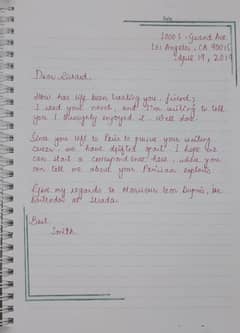 1000 S. Grand Ave.
Los Angeles, CA 90015
April 19, 2019
Dear
How has life been treating you, friend?
I read your novel, and I'm writing to tell
you I throughly enjoyed it. Well done.
Since you left to Paris to pursue your writing
career, we have drifted apart. I hope we
can start a correspondence here, where you
can tell me about your Parisian exploits.
Give my regards to Monsieur Leon Dupuis, the
bartender at
Best,
Smith